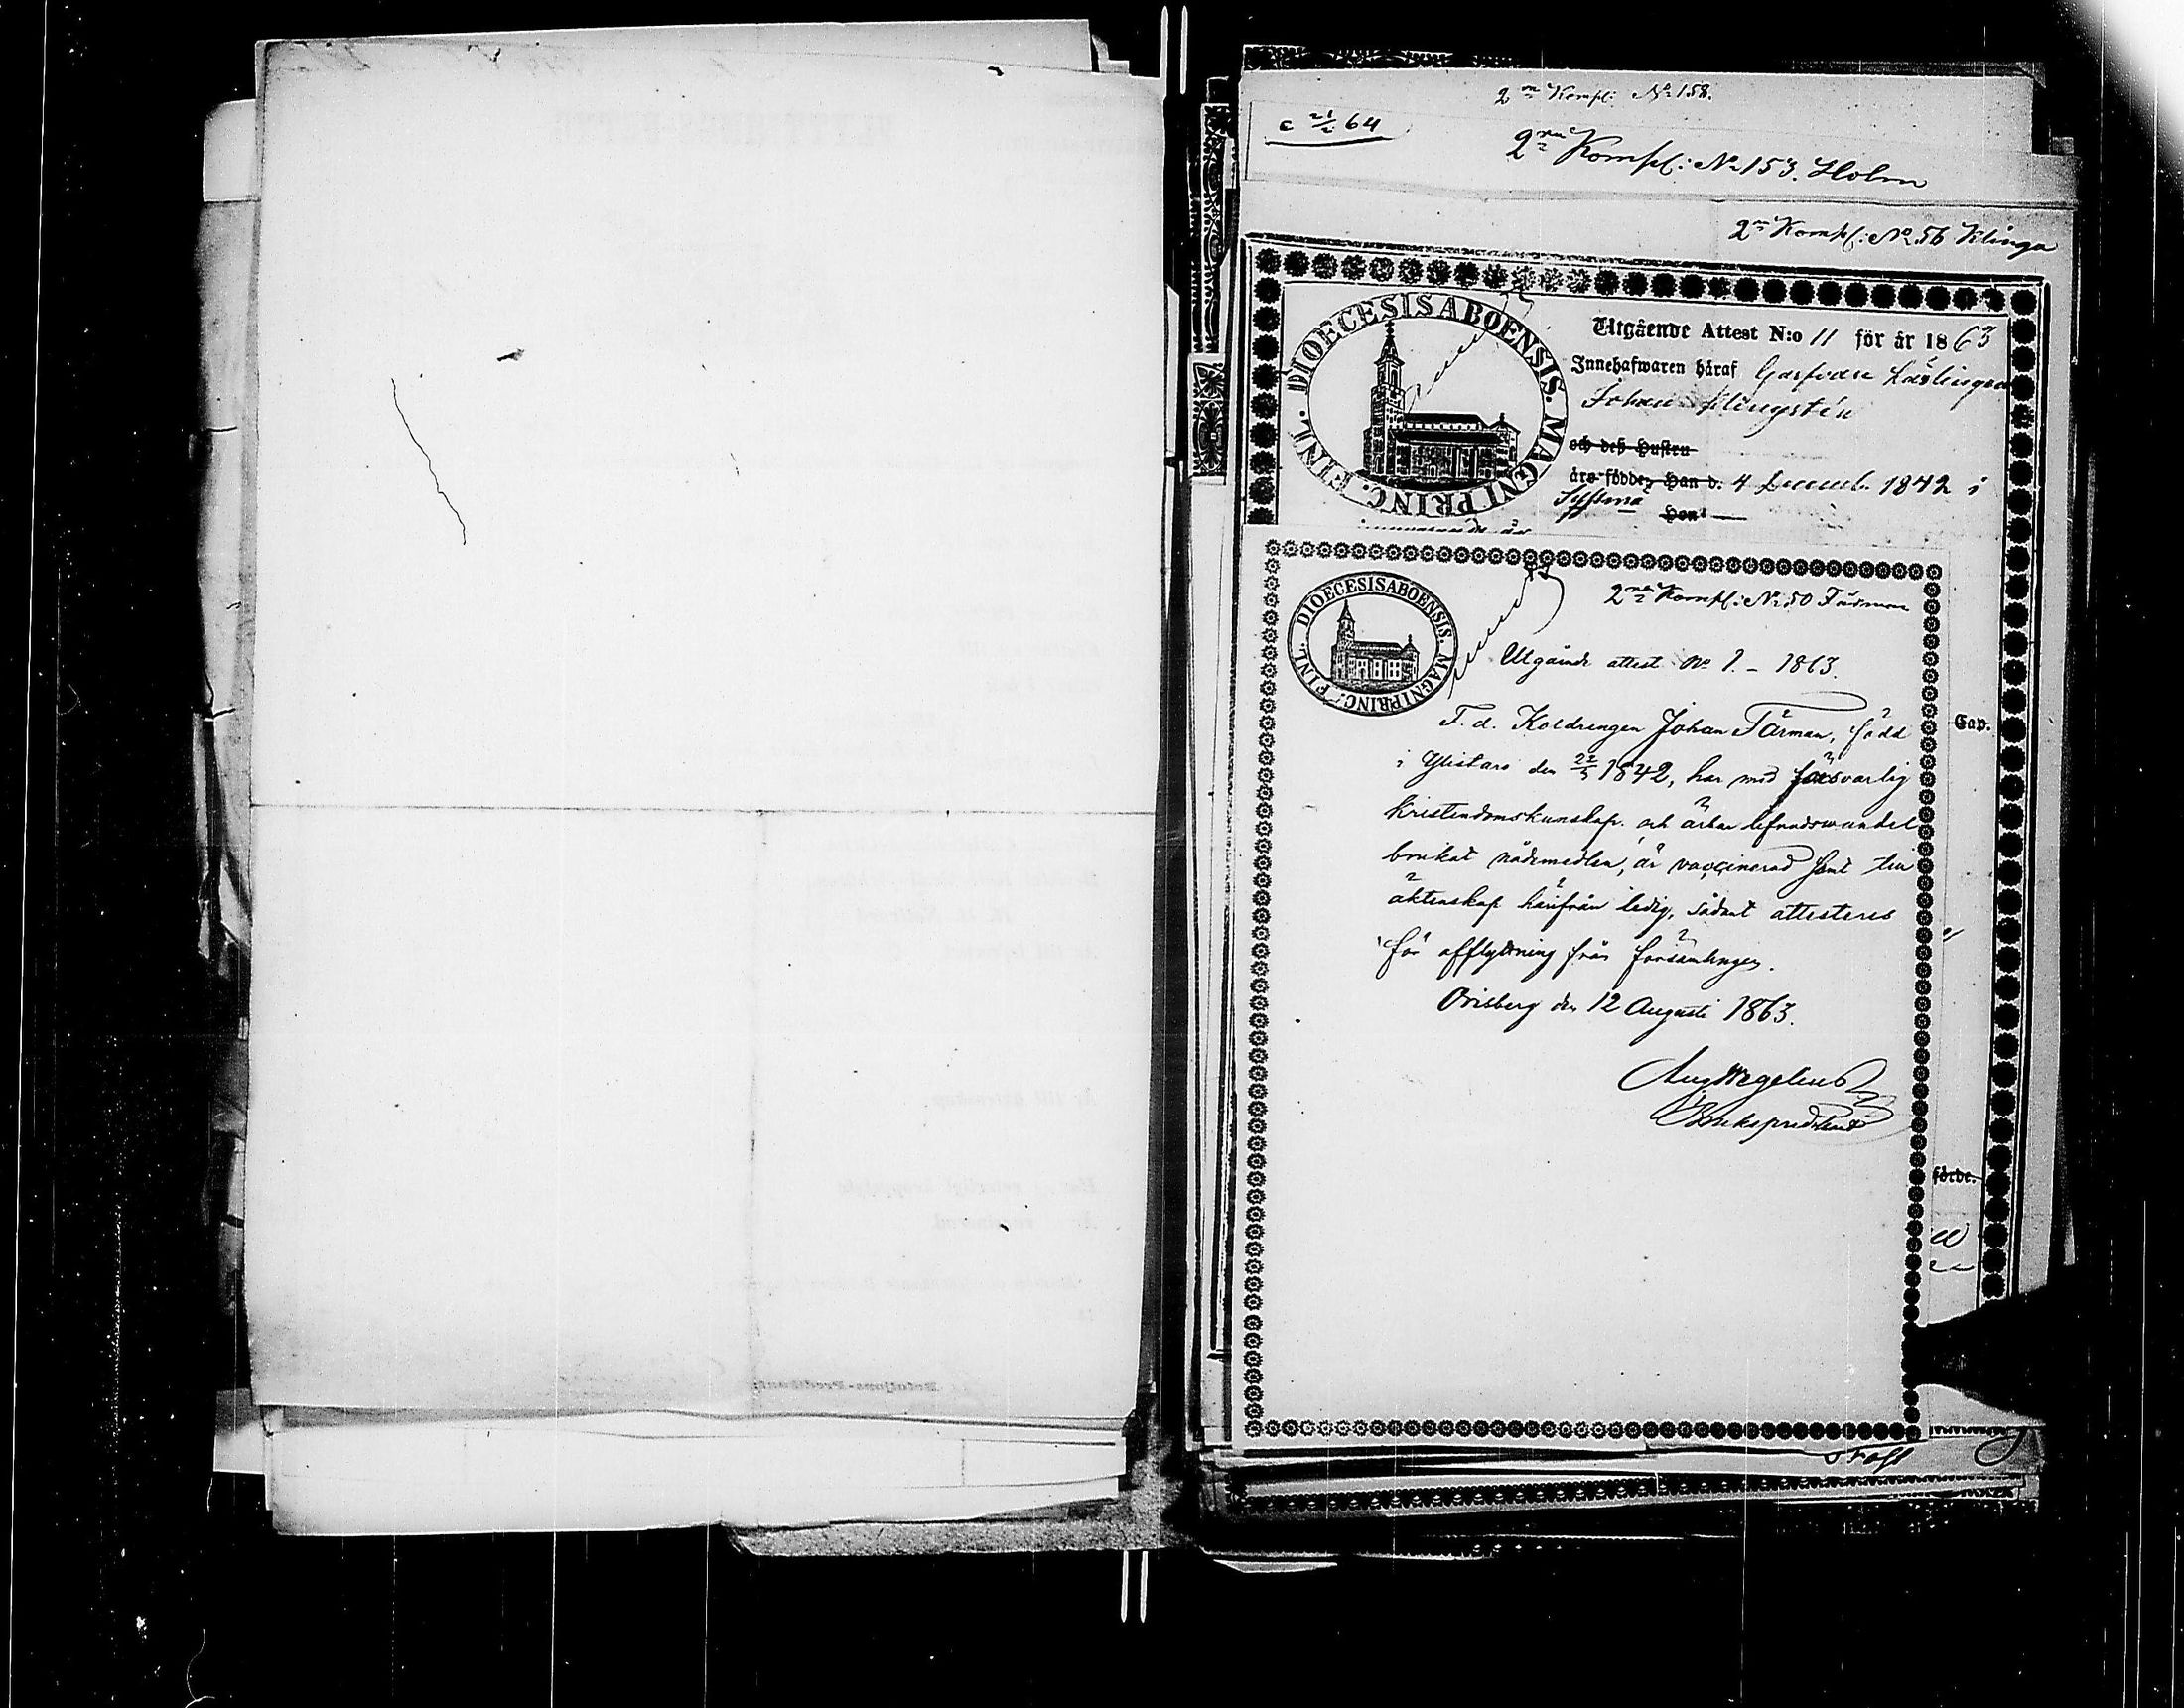 2n Kompl: No 158.
c 21/2 64
2ra Kompl: No 153. Holm
2n Kompl: No 56 Klinga
DIOECESIS ABOENSIS. MAGNI PRINC. FINL.
Utgående Attest N:o 11 för år 1863
Innehafwaren håraf Garfvare Lärlingen
Johan Klingstén
och deß Hustru
åro födde, Han d. 4 Decemb. 1842 i
Hon
DIOECESIS ABOENSIS. MAGNI PRINC. FINL.
2ra Kompl: No 50 Färman
Utgående attest No 1. - 1863.
F. d. Koldrengen Johan Färman, född
i Ylistaro den 22/3 1842, har med försvarlig
kristendomskunskap och ärbar lefnadswandel
brukat nådemedlen, är vaccinerad samt till
äktenskap härifrån ledig, sådant attesteras
för afflyttning från församlingen.
Orisberg den 12 Augusti 1863.
Aug Wegelius
Brukspredikant
Cap.
förde.